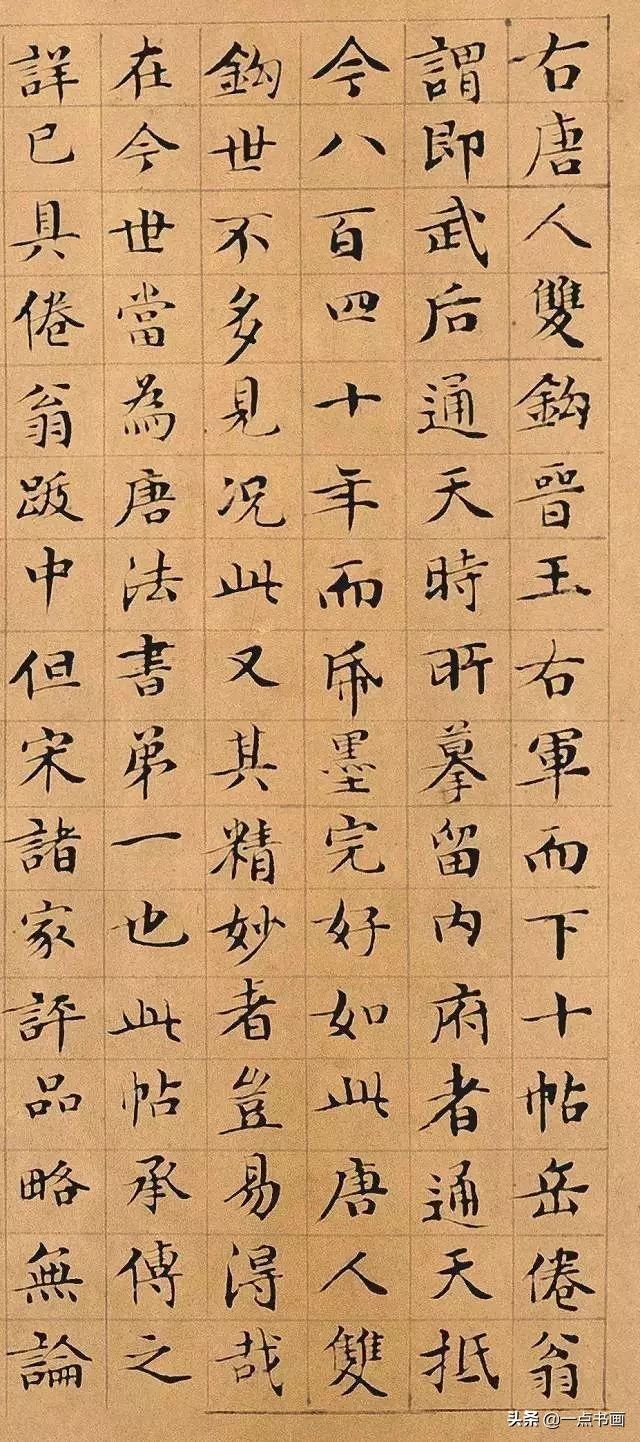 右唐人雙鈎晉王右軍而下十帖岳倦翁
謂即武后通天時所摹留內府者通天抵
今八百四十年而帋墨完好如此唐人雙
鈎世不多見况此又其精妙者豈易得哉
在今世當為唐法書第一也此帖承傳之
詳已具倦翁跋中但宋諸家評品略無論
头条 @一点书画